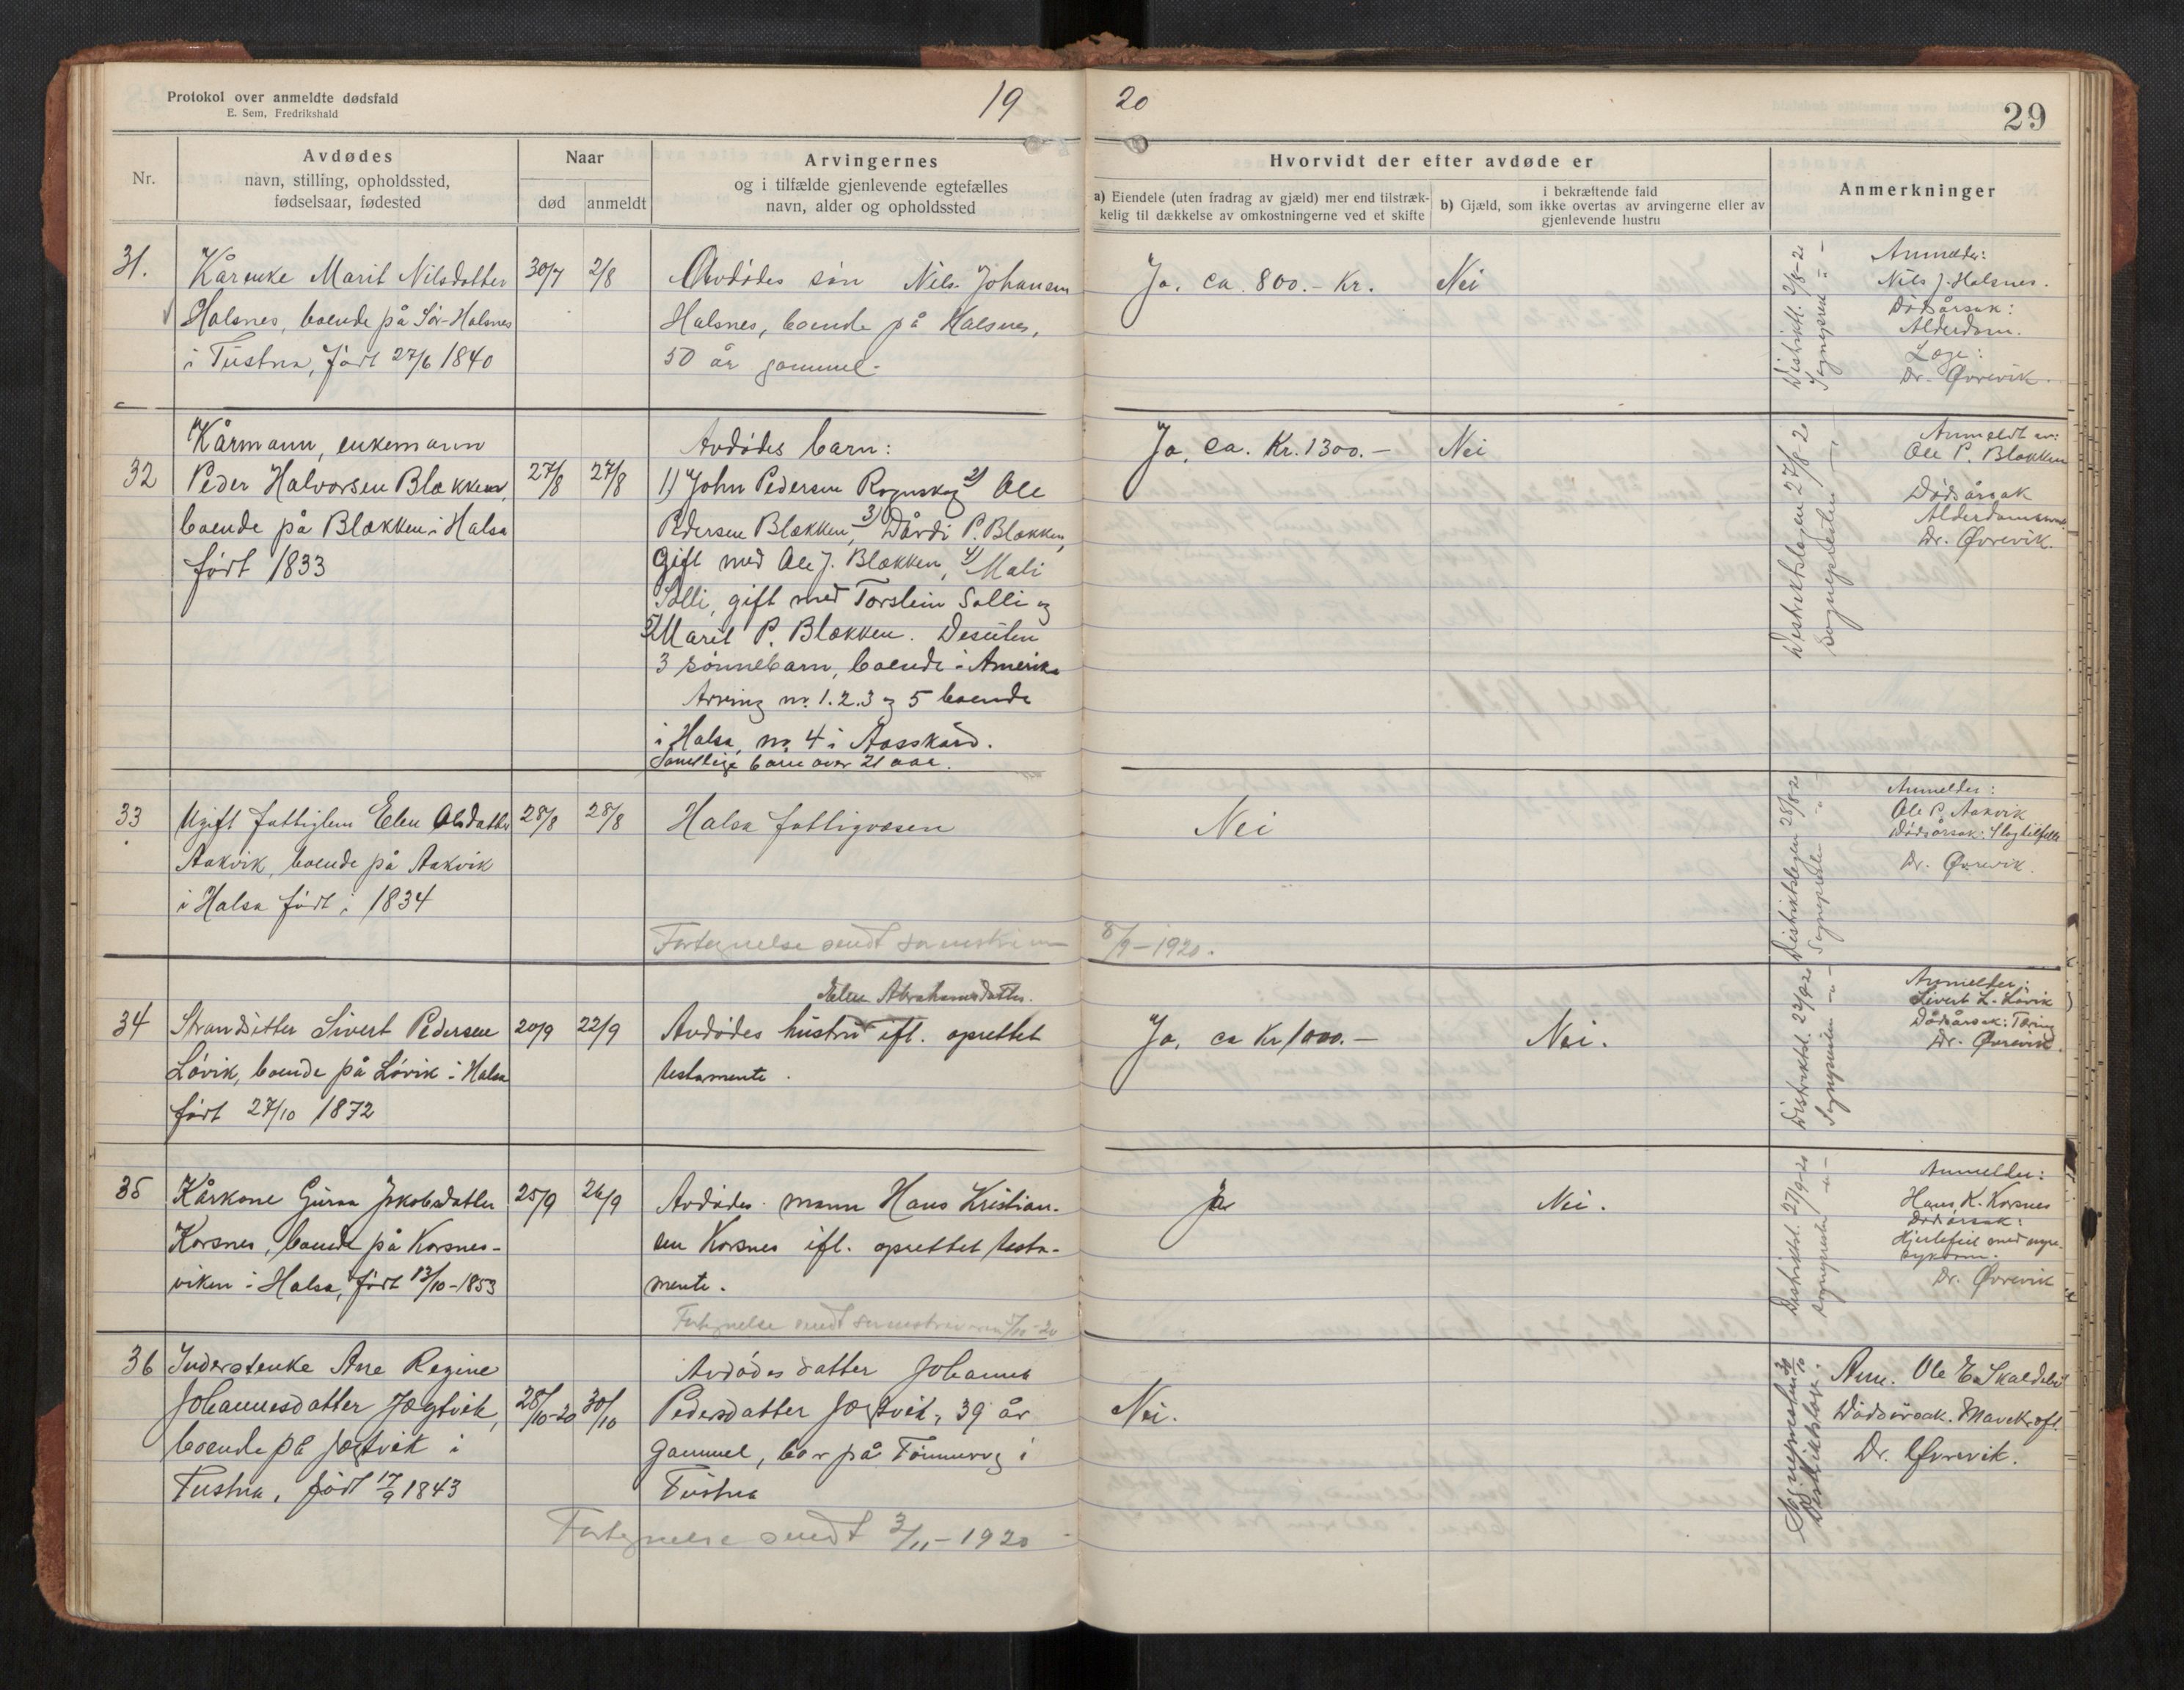 Protokol over anmeldte dødsfald
E. Sem, Fredrikshald
19
20
29
Nr.
Avdødes
navn, stilling, opholdssted,
fødselsaar, fødested
Naar
død
anmeldt
Arvingernes
og i tilfælde gjenlevende egtefælles
navn, alder og opholdssted
Hvorvidt der efter avdøde er
a) Eiendele (uten fradrag av gjæld) mer end tilstræk-
kelig til dækkelse av omkostningerne ved et skifte
i bekræftende fald
b) Gjæld, som ikke overtas av arvingerne eller av
gjenlevende hustru
Anmerkninger
31.
Kårenke Marit Nilsdatter
Halsnes, boende på Sør-Halsnes
i Tustna, født 27/6 1840
30/7
2/8
Avdødes søn Nils Johansen
Halsnes, boende på Halsnes,
50 år gammel.
Ja, ca. 800.- Kr.
Nei
Distriktl. 2/8-20
Sognepresten - " -
Anmelder:
Nils J. Halsnes.
Dødsårsak:
Alderdom.
Læge:
Dr. Øvrevik.
32
Kårmann, enkemann
Peder Halvorsen Blækken,
boende på Blækken i Halsa
født 1833
27/8
27/8
Avdødes barn:
1) John Pedersen Rognskog 2) Ole
Pedersen Blækken, 3) Dårdi P. Blækken,
gift med Ole J. Blækken, 4) Mali
Solli, gift med Torstein Solli og
5) Marit P. Blækken. Desuten
3 sønnebarn, boende i Amerika
Arving nr. 1.2.3 og 5 boende
i Halsa, nr. 4 i Aasskard.
Samtlige barn over 21 aar.
Ja, ca. Kr. 1300.-
Nei
Distriktslægen 27/8-20
Sognepresten - " -
Anmeldt av:
Ole P. Blækken
Dødsårsak
Dr. Øvrevik.
33
Ugift fattiglem Elen Olsdatter
Aakvik, boende på Aakvik
i Halsa født i 1834
28/8
28/8
Halsa fattigvæsen
Fortegnelse sendt sorenskriveren 8/9-1920.
Nei
Distriktslægen 28/8-20
Sognepresten - " -
Anmelder:
Ole P. Aakvik
Dødsårsak: Slagtilfelle
Dr. Øvrevik.
34
Strandsitter Sivert Pedersen
Løvik, boende på Løvik i Halsa
født 27/10 1872
20/9
22/9
Elen Abrahamsdatter.
Avdødes hustru ifl. oprettet
testamente.
Ja, ca Kr 1000.-
Nei.
Distriktsl. 22/9-20
Sognepresten - " -
Anmelder:
Sivert L. Løvik
Dødsårsak: Tæring
Dr. Øvrevik.
35
Kårkone Guroa Jakobsdatter
Korsnes, boende på Korsnes-
viken i Halsa, født 13/10-1853
25/9
26/9
Avdødes mann Hans Kristian-
sen Korsnes ifl. oprettet testa-
mente.
Fortegnelse sendt sorenskriveren
Ja
Nei.
Distriktsl. 27/9-20
Sognepresten - " -
Anmelder:
Hans K. Korsnes
Dødsårsak:
Hjertefeil med nyre-
sykdom.
Dr. Øvrevik
36
Inderstenke Ane Regine
Johannesdatter Jægtvik,
boende på Jægtvik i
Tustna, født 17/9 1843
28/10-20
30/10
Avdødes datter Johanna
Pedersdatter Jægtvik, 39 år
gammel, bor på i
Tustna
Fortegnelse sendt 3/11-1920
Nei.
Sognepresten 30/10
Distriktslæge.
Anm. Ole E. Skaldebøl
Dødsårsak. Mavekræft.
Dr. Øvrevik.